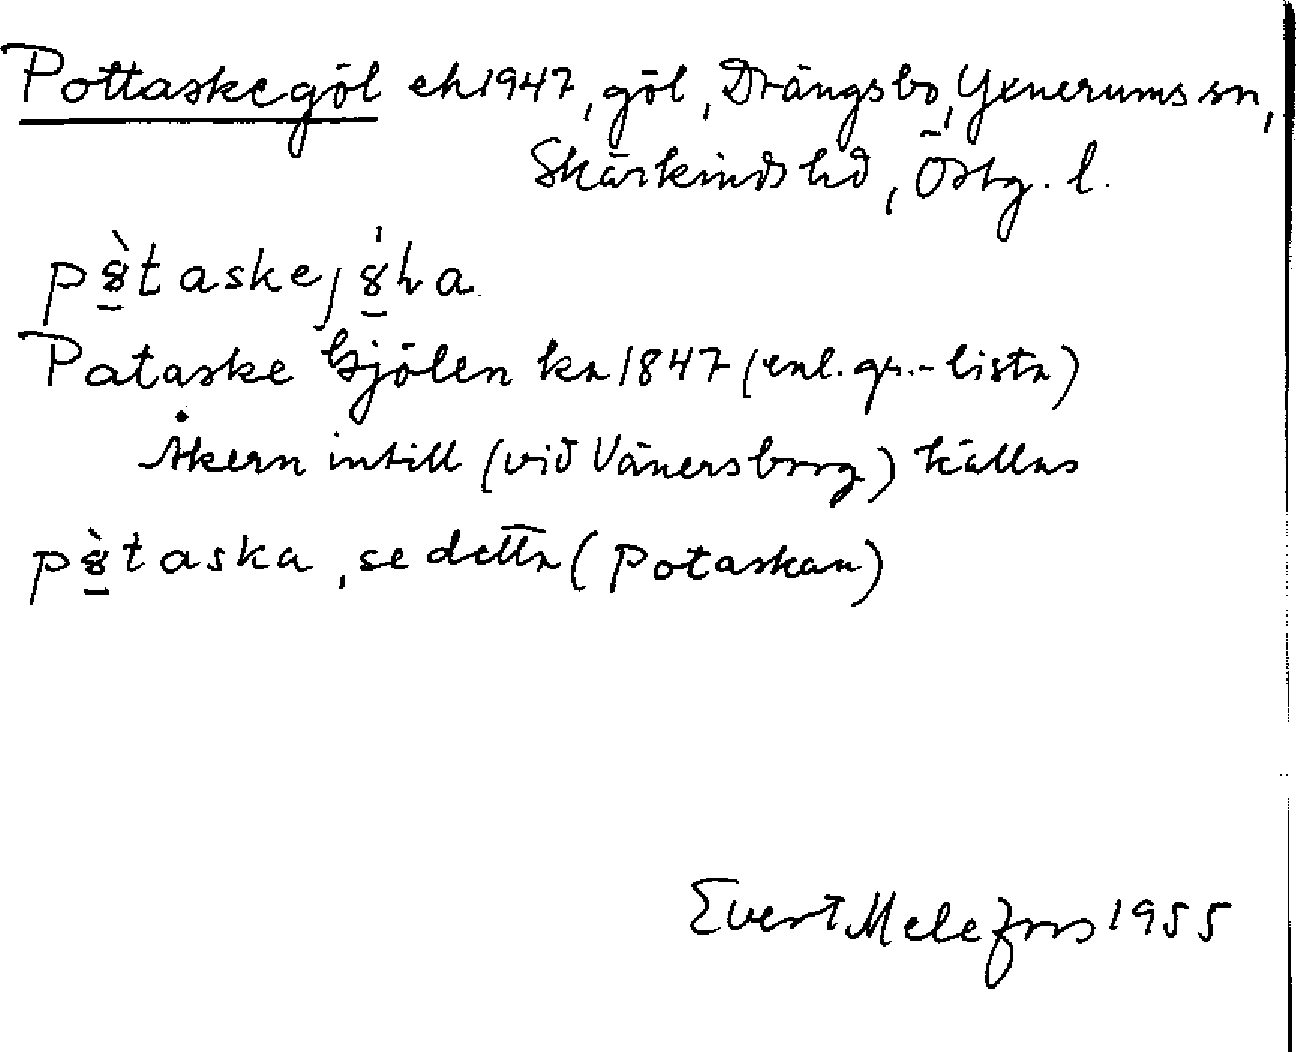 Pottaskegöl ek 1947, göl, Drängsbo, Yxnerums sn,
Skärkinds hd, Östg. l.
pət̀askejə́ɫa
Pataske Gjölen ka 1847 (enl. gr.-lista)
Åkern intill (vid Vänersborg) kallas
pə̀taska, se detta (Potaskan)
Evert Melefors 1955